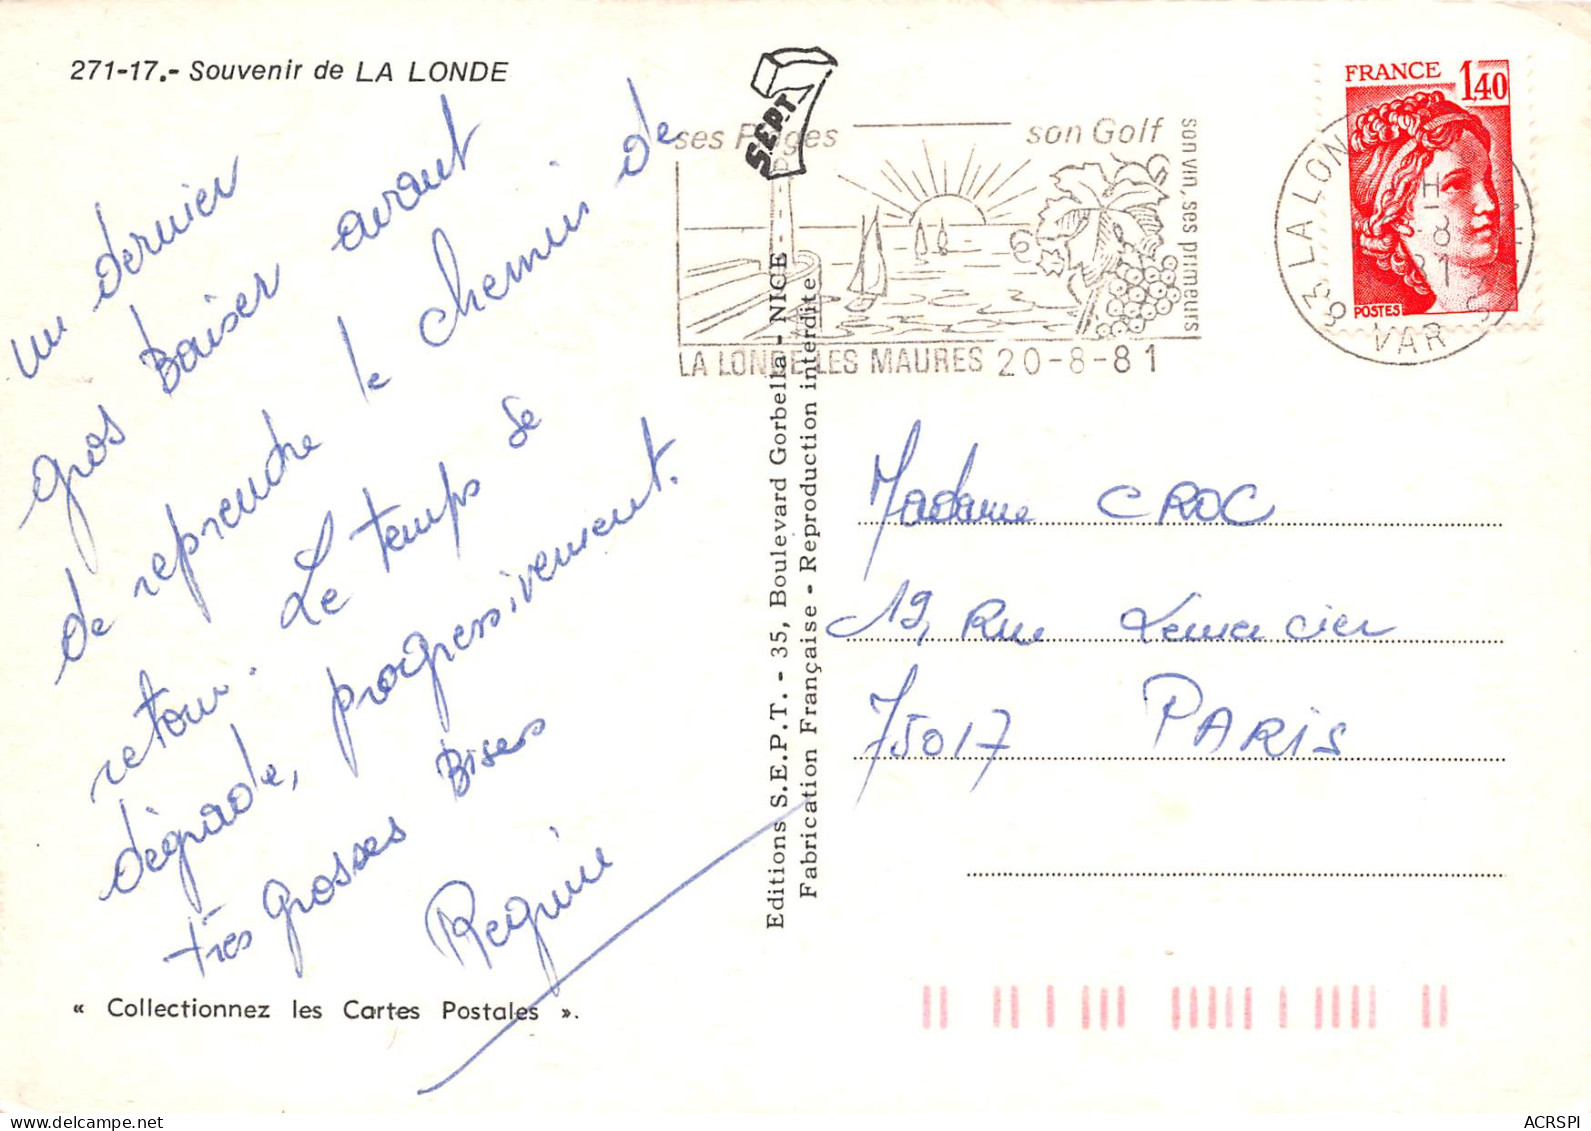 271-17.- Souvenir de LA LONDE
un dernier
gros Baiser avant
de reprendre le chemin de
retour. Le temps se
dégrade, progressivement.
très grosses Bises
Regine
« Collectionnez les Cartes Postales ».
Editions S.E.P.T. - 35, Boulevard Gorbella - NICE -
Fabrication Française - Reproduction interdite
SEPT
ses Plages son Golf
son vin, ses primeurs
LA LONDE LES MAURES 20-8-81
FRANCE 1,40
POSTES
83 LA LON
VAR
Madame CROC
19, Rue Lemercier
75017 PARIS
ACRSPI